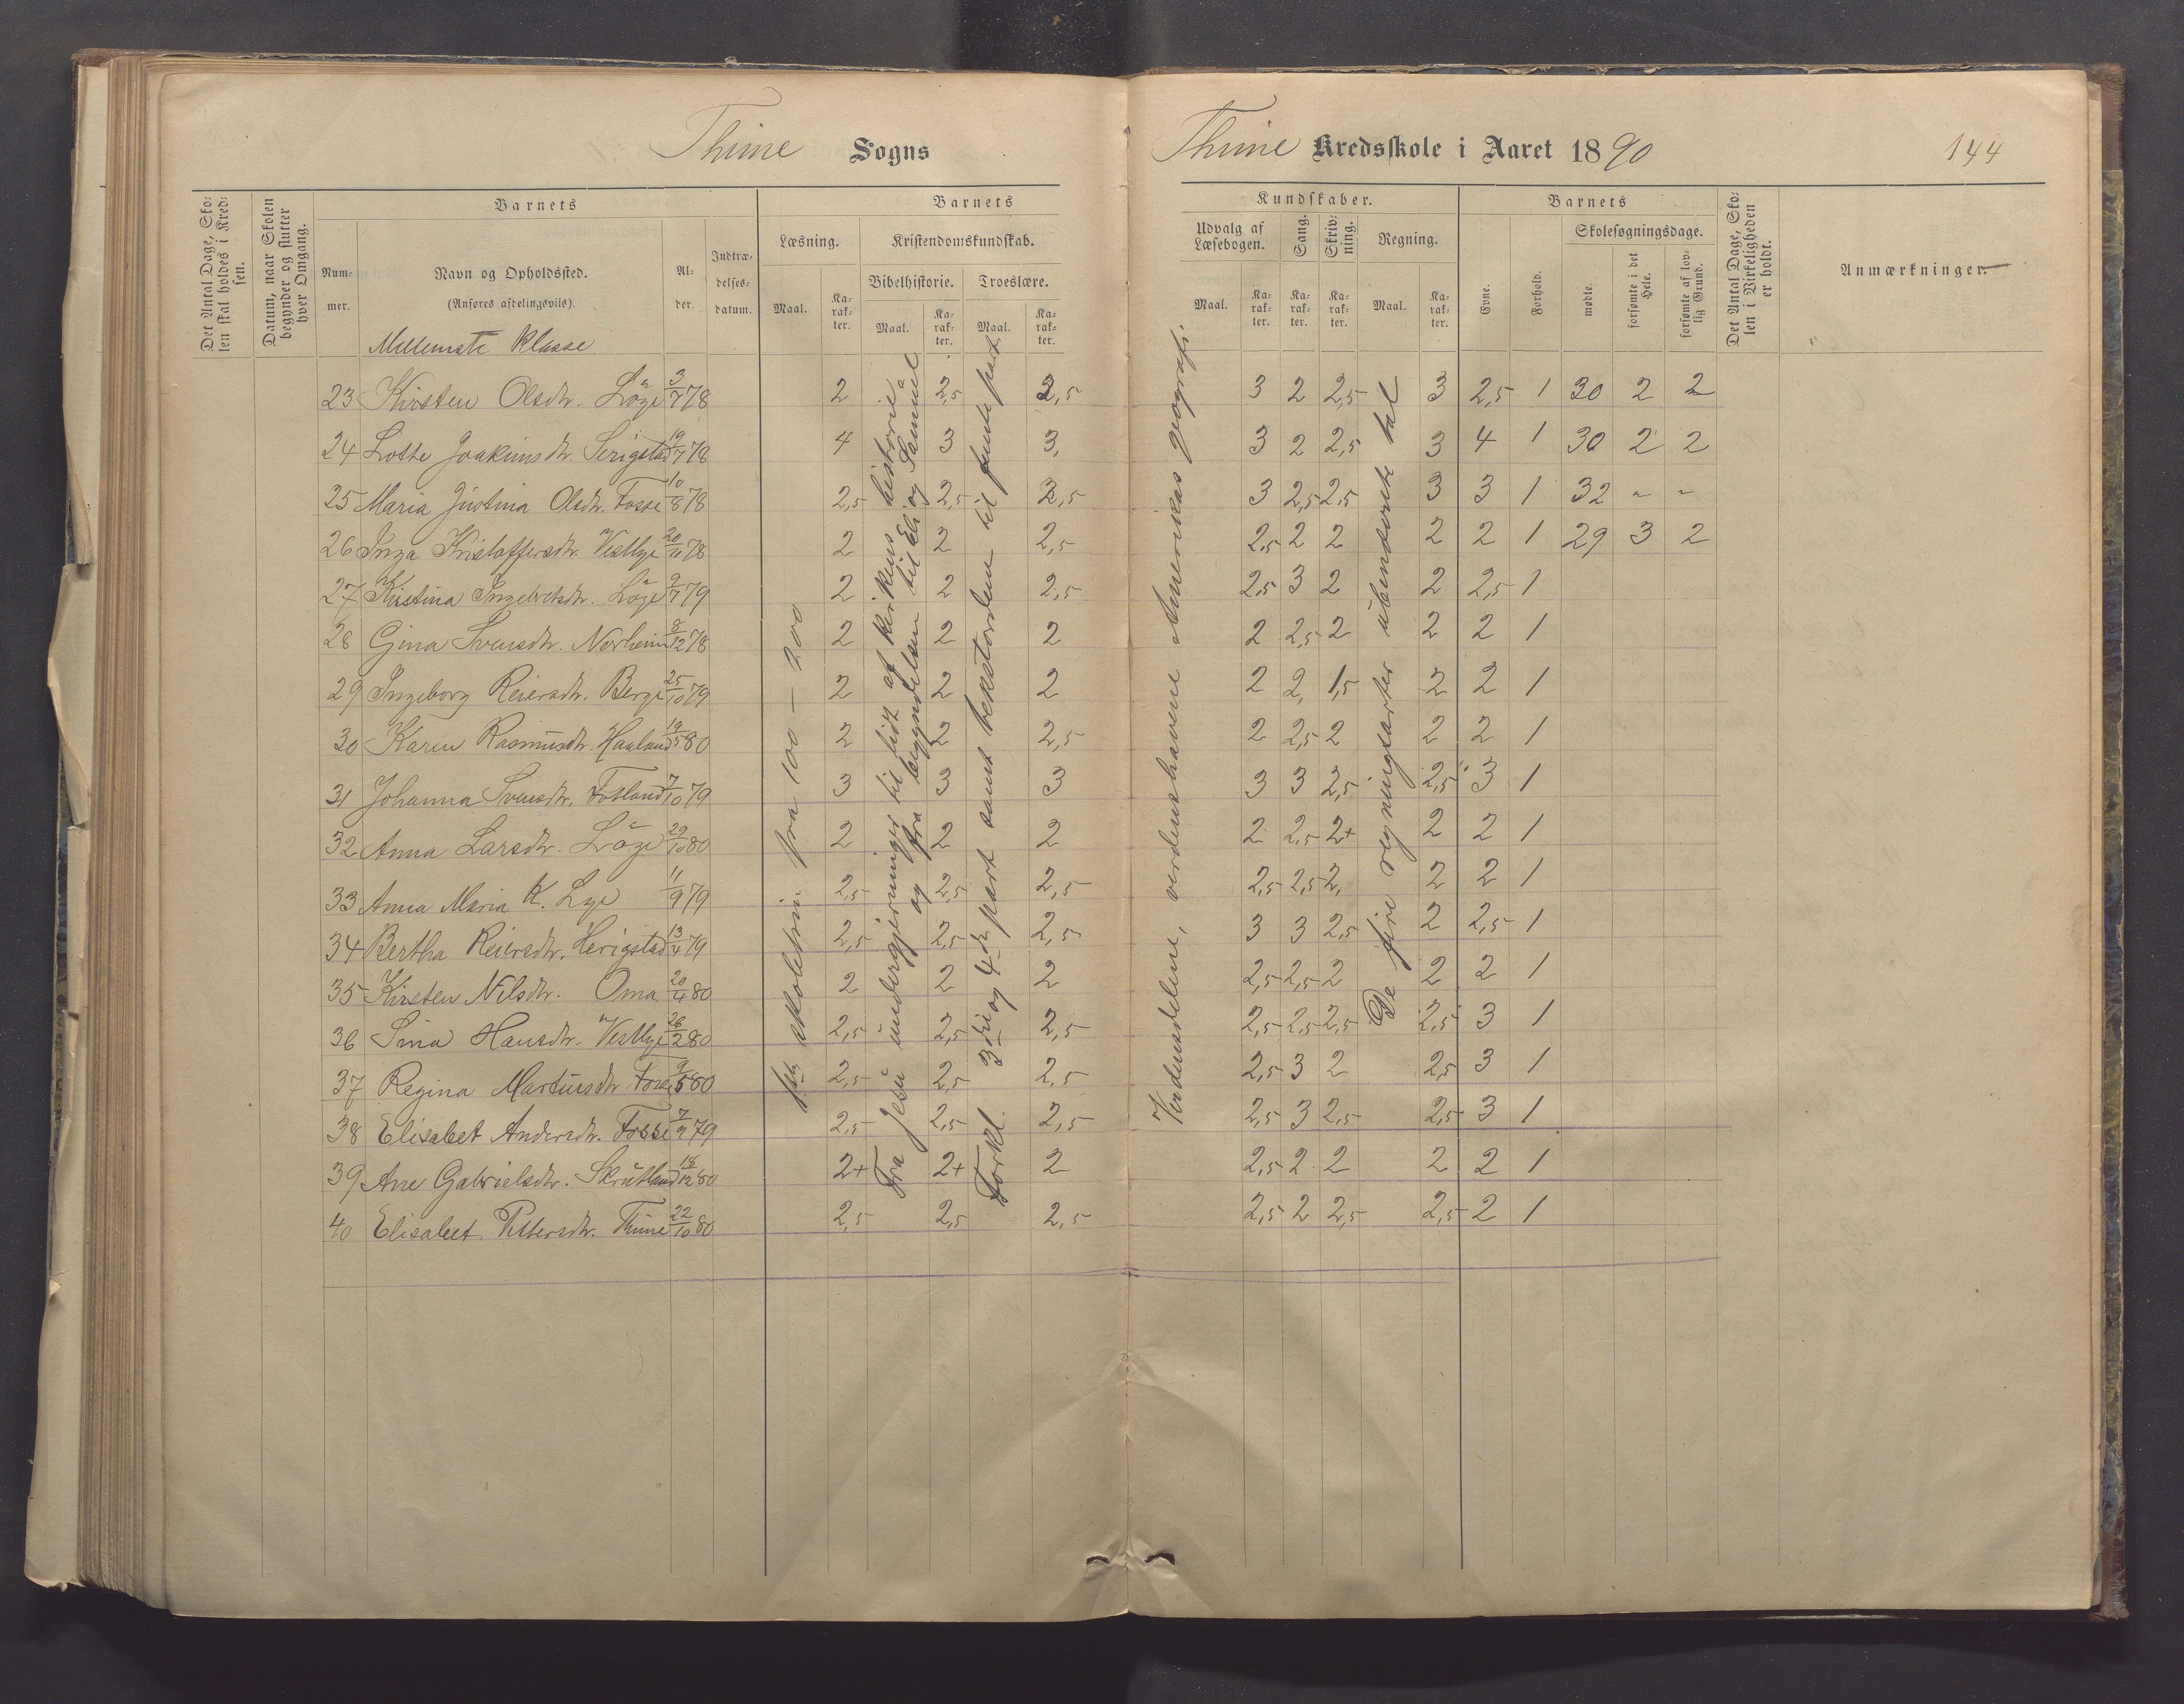 Thime Sogns
Thime Kredsskole i Aaret 1890
144
Det Antal Dage, Sko-
len skal holdes i Kred-
sen.
Datum, naar Skolen
begynder og slutter
hver Omgang.
Barnets
Num-
mer.
Navn og Opholdssted.
(Anføres afdelingsvis).
Al-
der.
Indtræ-
delses-
datum.
Barnets
Læsning.
Maal.
Ka-
rak-
ter.
Kristendomskundskab.
Bibelhistorie.
Maal.
Ka-
rak-
ter.
Troeslære.
Maal.
Ka-
rak-
ter.
Kundskaber.
Udvalg af
Læsebogen.
Maal.
Ka-
rak-
ter.
Sang.
Ka-
rak-
ter.
Skriv-
ning.
Ka-
rak-
ter.
Regning.
Maal.
Ka-
rak-
ter.
Barnets
Evne.
Forhold.
Skolesøgningsdage.
mødte.
forsømte i det
Hele.
forsømte af lov-
lig Grund.
Det Antal Dage, Sko-
len i Virkeligheden
er holdt.
Anmærkninger.
Mellemste Klasse
23 Kirsten Olsdtr. Löge 3/7 78 2 2,5 2,5 3 2 2,5 3 2,5 1 30 2 2
24 Lotte Joakimsdtr. Serigstad 19/7 78 4 3 3, 3 2 2,5 3 4 1 30 2 2
25 Maria Justina Olsdtr. Fosse 10/8 78 2,5 2,5 2,5 3 2,5 2,5 3 3 1 32 - -
26 Inga Kristoffersdtr. Vestlye 20/11 78 2 2 2,5 2,5 2 2 2 2 1 29 3 2
27 Kristina Ingebretsdtr. Löge 9/7 79 2 2 2,5 2,5 3 2 2 2,5 1
28 Gina Svensdtr. Norheim 8/12 78 2 2 2 2 2,5 2 2 2 1
29 Ingeborg Reiersdtr. Berge 25/10 79 2 2 2 2 2, 1,5 2 2 1
30 Karen Rasmusdtr. Haaland 19/5 80 2 2 2,5 2 2,5 2 2 2 1
31 Johanna Svensdtr. Fotland 7/10 79 3 3 3 3 3 2,5 2,5 3 1
32 Anna Larsdtr. Löge 29/10 80 2 2 2 2 2,5 2+ 2 2 1
33 Anna Maria K. Lye 11/9 79 2,5 2,5 2,5 2,5 2,5 2, 2 2 1
34 Bertha Reiersdtr. Herigstad 13/4 79 2,5 2,5 2,5 3 3 2,5 2 2,5 1
35 Kirsten Nilsdtr. Oma 20/4 80 2 2 2 2,5 2,5 2 2 2 1
36 Sina Hansdtr. Vestlye 26/2 80 2,5 2,5 2,5 2,5 2,5 2,5 2,5 3 1
37 Regina Martinsdtr. Fosse 9/5 80 2,5 2,5 2,5 2,5 3 2 2,5 3 1
38 Elisabet Andersdtr. Fosse 7/9 79 2,5 2,5 2,5 2,5 3 2,5 2,5 3 1
39 Ane Gabrielsdtr. Skrutland 18/12 80 2+ 2+ 2 2,5 2 2 2 2 1
40 Elisabet Pettersdtr. Thime 22/10 80 2,5 2,5 2,5 2,5 2 2,5 2,5 2 1
skoletrin fra 100 - 200
Fra Jesu undergjerninger til lidt af kirkens historie
og fra begyndelsen til Eli og Samuel
Forkl. 3die og 4de part samt tekstordene til femte part
Verdensdelene, verdenshavene Amerikas geografi.
De fire regningsarter ubenævnte tal